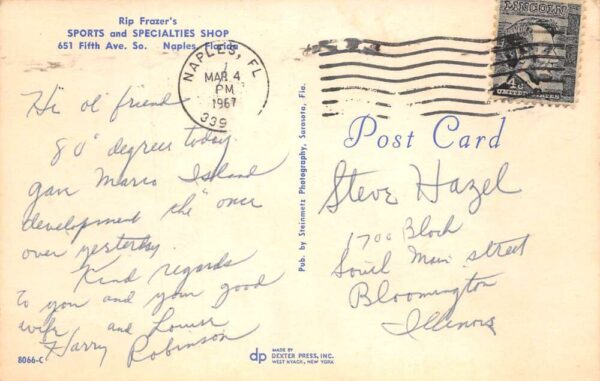 Rip Frazer's
SPORTS and SPECIALTIES SHOP
651 Fifth Ave. So. Naples, Florida
NAPLES, FL
MAR 4
PM
1967
339
LINCOLN
4¢
UNITED STATES
Hi ol' friend
80° degrees today.
gave Marco Island
development the "once
over yesterday.
Kind regards
to you and your good
wife and Louise
Harry Robinson
8066-C
Pub. by Steinmetz Photography, Sarasota, Fla.
Post Card
Steve Hazel
1700 Block
South Main street
Bloomington
Illinois
dp MADE BY
DEXTER PRESS, INC.
WEST NYACK, NEW YORK